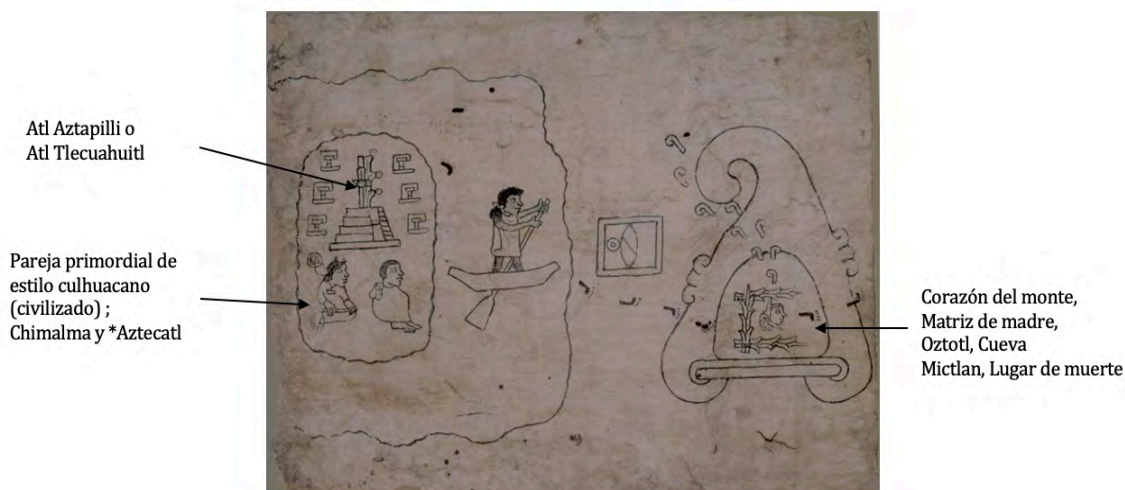 Atl Aztapilli o
Atl Tlecuahuitl
Pareja primordial de
estilo culhuacano
(civilizado) ;
Chimalma y *Aztecatl
Corazón del monte,
Matriz de madre,
Oztotl, Cueva
Mictlan, Lugar de muerte